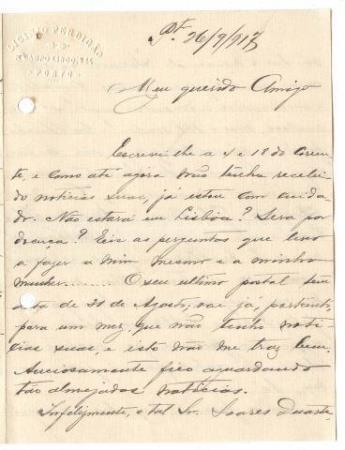 LICINIO PERDIGÃO
PORTO
Pt. 26/9/917
Meu querido Amigo
Escrevi-lhe a 4 e 18 do corren-
te, e como até agora não tenha recebi-
do noticias suas, já estou com cuida-
do. Não estará em Lisboa? Será por
doença? Eis as perguntas que levo
a fazer a mim mesmo e a minha
mulher...... O seu ultimo postal tem
a data de 21 de Agosto; vae já, portanto,
para um mez, que não tenho noti-
cias suas, e isto não me traz bem.
Anciosamente fico aguardando
tão almejadas noticias.
Infelizmente, o tal Sr. Soares Duarte